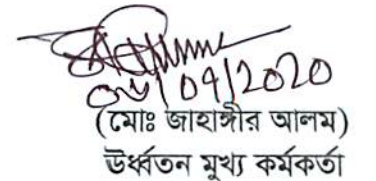 /09/2020
(মোঃ জাহাঙ্গীর আলম)
উর্ধ্বতন মুখ্য কর্মকর্তা